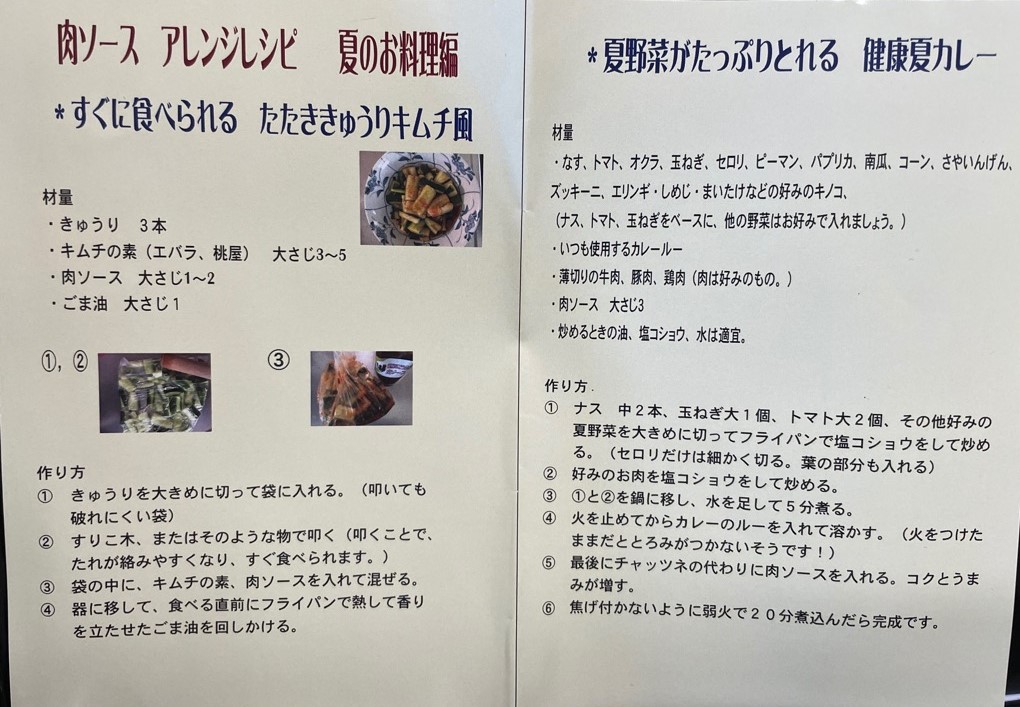 肉ソース　アレンジレシピ　夏のお料理編
*すぐに食べられる　たたききゅうりキムチ風
材量
・きゅうり　３本
・キムチの素（エバラ、桃屋）　大さじ3〜5
・肉ソース　大さじ1〜2
・ごま油　大さじ１
①，②
③
作り方
①　きゅうりを大きめに切って袋に入れる。（叩いても
破れにくい袋）
②　すりこ木、またはそのような物で叩く（叩くことで、
たれが絡みやすくなり、すぐ食べられます。）
③　袋の中に、キムチの素、肉ソースを入れて混ぜる。
④　器に移して、食べる直前にフライパンで熱して香り
を立たせたごま油を回しかける。
*夏野菜がたっぷりとれる　健康夏カレー
材量
・なす、トマト、オクラ、玉ねぎ、セロリ、ピーマン、パプリカ、南瓜、コーン、さやいんげん、
ズッキーニ、エリンギ・しめじ・まいたけなどの好みのキノコ、
（ナス、トマト、玉ねぎをベースに、他の野菜はお好みで入れましょう。）
・いつも使用するカレールー
・薄切りの牛肉、豚肉、鶏肉（肉は好みのもの。）
・肉ソース　大さじ3
・炒めるときの油、塩コショウ、水は適宜。
作り方．
①　ナス　中２本、玉ねぎ大１個、トマト大２個、その他好みの
夏野菜を大きめに切ってフライパンで塩コショウをして炒め
る。（セロリだけは細かく切る。葉の部分も入れる）
②　好みのお肉を塩コショウをして炒める。
③　①と②を鍋に移し、水を足して５分煮る。
④　火を止めてからカレーのルーを入れて溶かす。（火をつけた
ままだととろみがつかないそうです！）
⑤　最後にチャッツネの代わりに肉ソースを入れる。コクとうま
みが増す。
⑥　焦げ付かないように弱火で２０分煮込んだら完成です。